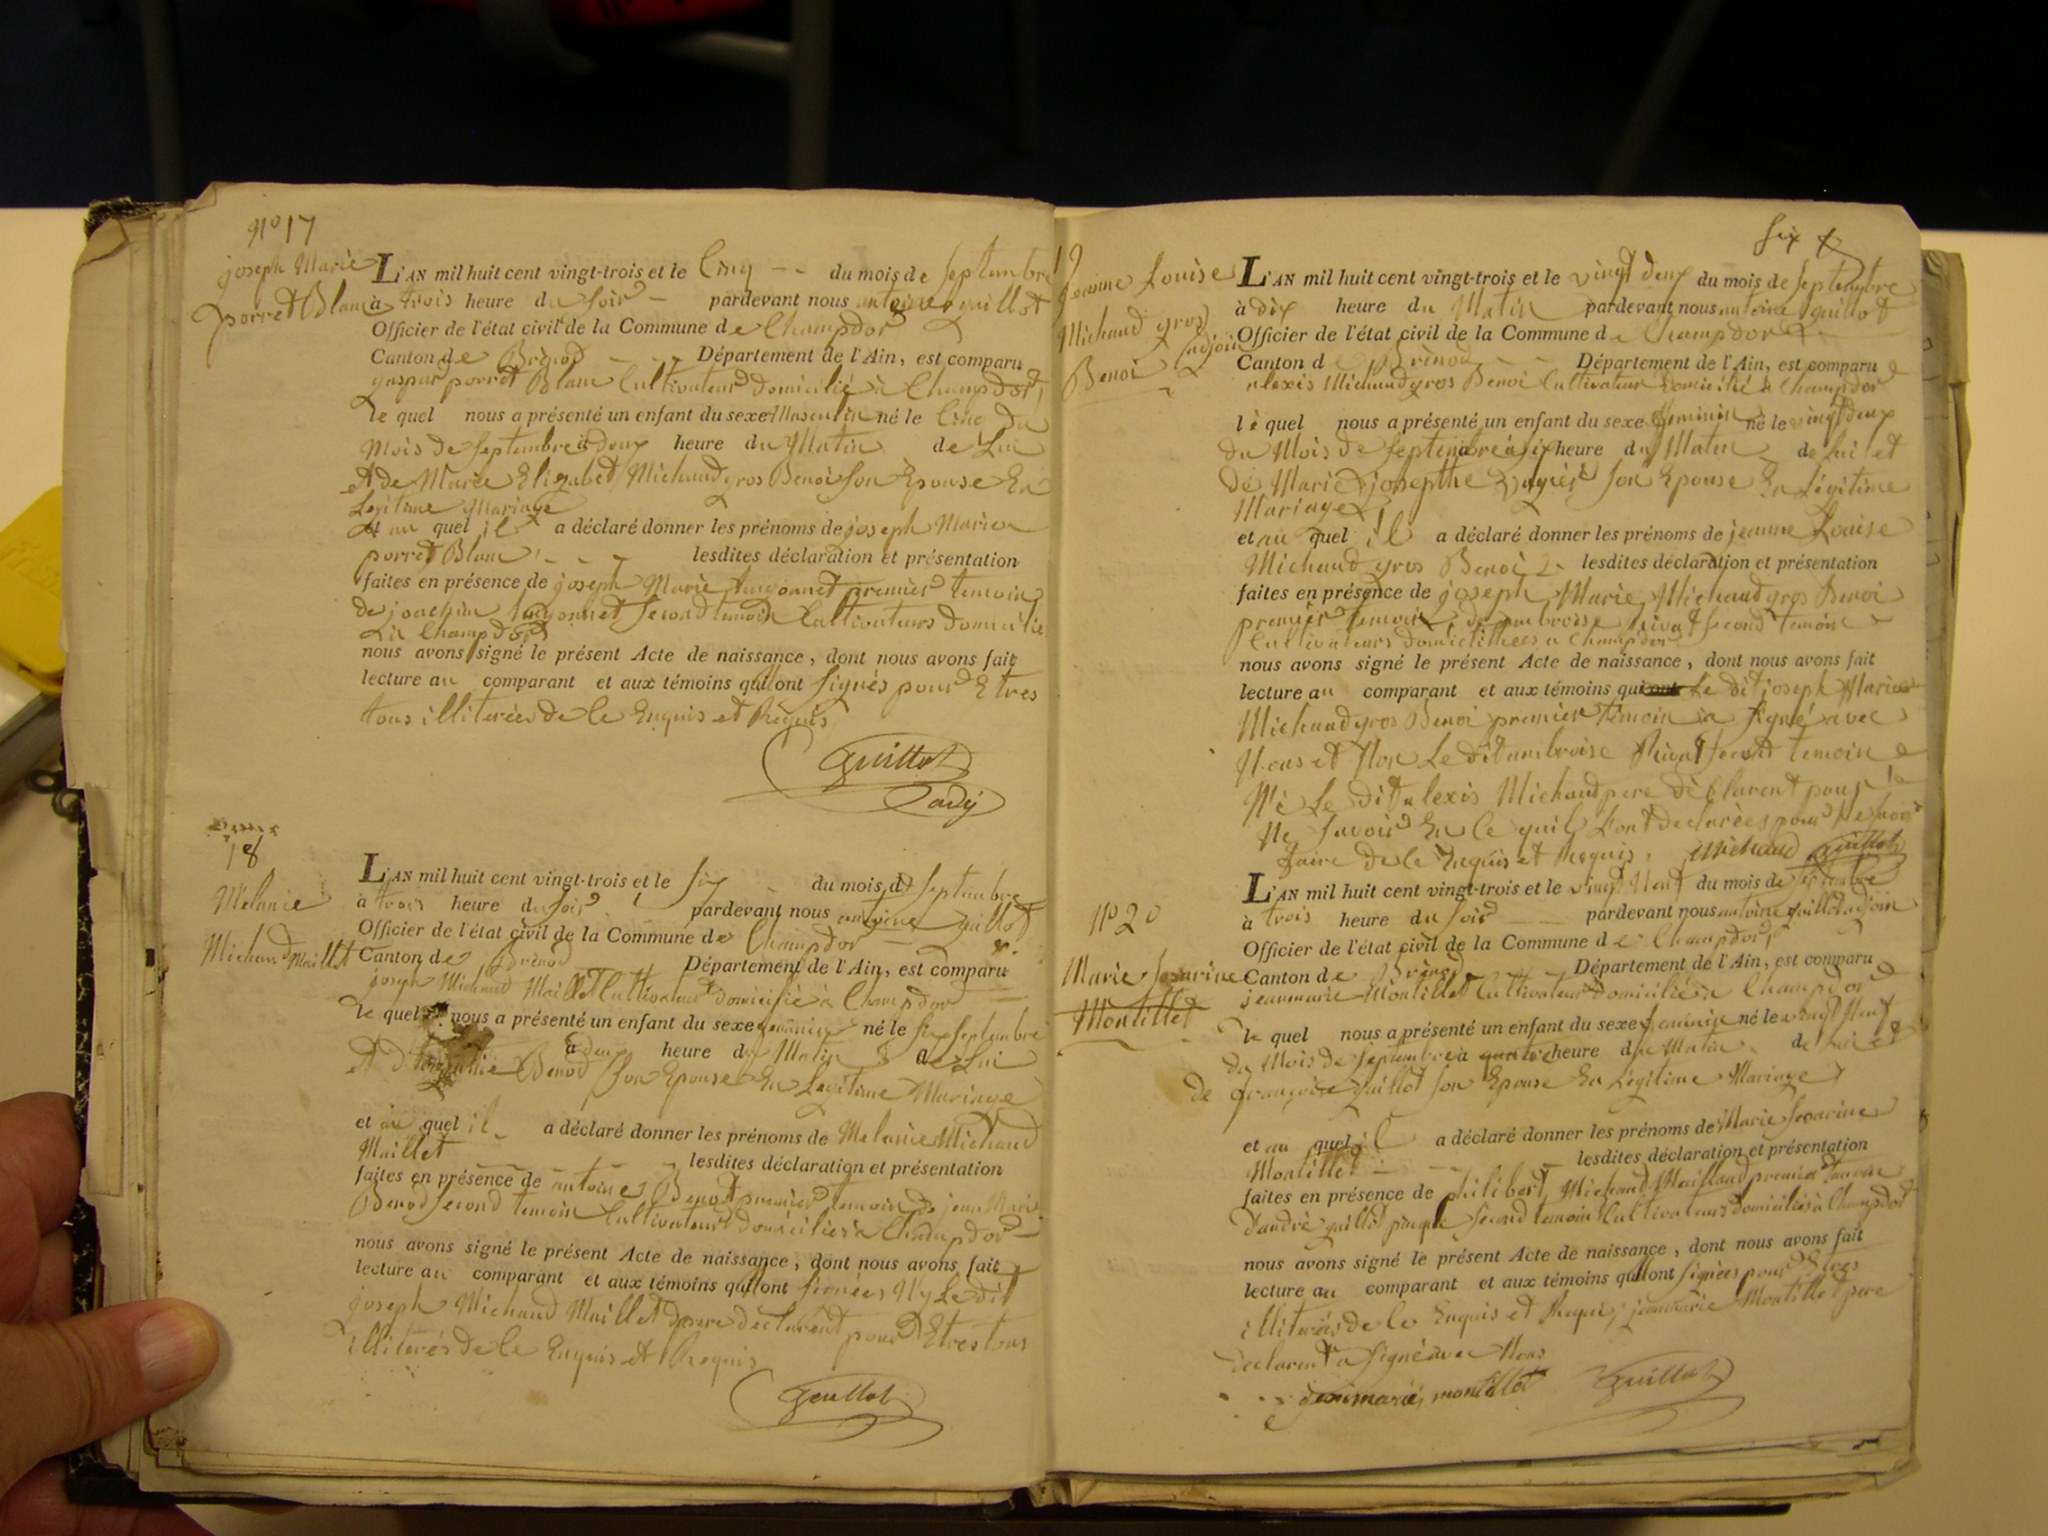 N° 17
joseph Marie
porret Blanc
L'AN mil huit cent vingt-trois et le Cinq -- du mois de septembre
à trois heure du soir - pardevant nous antoine guillot
Officier de l'état civil de la Commune de Champdor
Canton de Brenod - - - Département de l'Ain, est comparu
gaspar porret Blanc Cultivateur domicilié à Champdor
le quel nous a présenté un enfant du sexe Masculin né le Cinq du
Mois de septembre à deux heure du Matin de Lui
et de Marie Elizabet Michaud gros Benoi son Epouse En
Legitime Mariage
et au quel il a déclaré donner les prénoms de joseph Marie
porret Blanc - - - lesdites déclaration et présentation
faites en présence de joseph Marie premier temoin
de joachim second temoin Cultivateurs domicilie
à Champdor
nous avons signé le présent Acte de naissance, dont nous avons fait
lecture au comparant et aux témoins qui ont signés pour Etres
tous illiterées de le Enquis et Requis
Guillot
adj
18
Melanie
Michaud Maillet
L'AN mil huit cent vingt-trois et le six - du mois d septembre
à trois heure du soir pardevant nous antoine guillot
Officier de l'état civil de la Commune de Champdor -
Canton de Brenod Département de l'Ain, est comparu
joseph Michaud Maillet Cultivateur domicilié à Champdor
le quel nous a présenté un enfant du sexe feminin né le six septembre
à deux heure du Matin de Lui
et d' Benod son Epouse En Legitime Mariage
et au quel il a déclaré donner les prénoms de Melanie Michaud
Maillet - - - lesdites déclaration et présentation
faites en présence de antoine Benod premier temoin de jean Marie
Benod second temoin Cultivateurs domiciliés à Champdor
nous avons signé le présent Acte de naissance, dont nous avons fait
lecture au comparant et aux témoins qui ont signées Ny Le dit
joseph Michaud Maillet pere declarent pour Etres tous
illiterés de le Enquis et Requis
Guillot
six
19
Jeanne Louise
Michaud gros
Benoi
L'AN mil huit cent vingt-trois et le vingt deux du mois de septembre
à dix heure du Matin pardevant nous antoine guillot
adjoin
Officier de l'état civil de la Commune de Champdor
Canton de Brenod - - Département de l'Ain, est comparu
alexis Michaud gros Benoi Cultivateur domicilié à Champdor
le quel nous a présenté un enfant du sexe feminin né le vingt deux
du Mois de septembre à six heure du Matin de lui et
de Marie josephte son Epouse En Légitime
Mariage
et au quel il a déclaré donner les prénoms de jeanne Louise
Michaud gros Benoi lesdites déclaration et présentation
faites en présence de joseph Marie Michaud gros Benoi
premier temoin, d'ambroise Rivat second temoin
Cultivateurs domiciliées à Champdor
nous avons signé le présent Acte de naissance, dont nous avons fait
lecture au comparant et aux témoins qui ont Le dit joseph Marie
Michaud gros Benoi premier témoin a signé avec
Nous et Non Le dit ambroise Rivat second temoin
Ni Le dit alexis Michaud pere déClarent pour
Ne savoir En Ce quil sont declarées pour Ne savoir
faire de le Enquis et Requis. Michaud Guillot
N° 20
Marie Severine
Montillet
L'AN mil huit cent vingt-trois et le vingt Neuf du mois de septembre
à trois heure du soir pardevant nous antoine guillot adjoin
Officier de l'état civil de la Commune de Champdor
Canton de Brenod Département de l'Ain, est comparu
jeanmarie Montillet Cultivateur domicilié à Champdor
le quel nous a présenté un enfant du sexe feminin né le vingt Neuf
du Mois de septembre à quatre heure du Matin de lui et
de françoise guillot son Epouse En Légitime Mariage
et au quel il a déclaré donner les prénoms de Marie Severine
Montillet - - - lesdites déclaration et présentation
faites en présence de philibert Michaud Mailland premier temoin
d'andré guillot second temoin Cultivateurs domiciliés à Champdor
nous avons signé le présent Acte de naissance, dont nous avons fait
lecture au comparant et aux témoins qui ont signées pour Etres
illiterés de le Enquis et Requis, jeanmarie Montillet pere
declarent a signé avec Nous
jeanmarie montillet Guillot